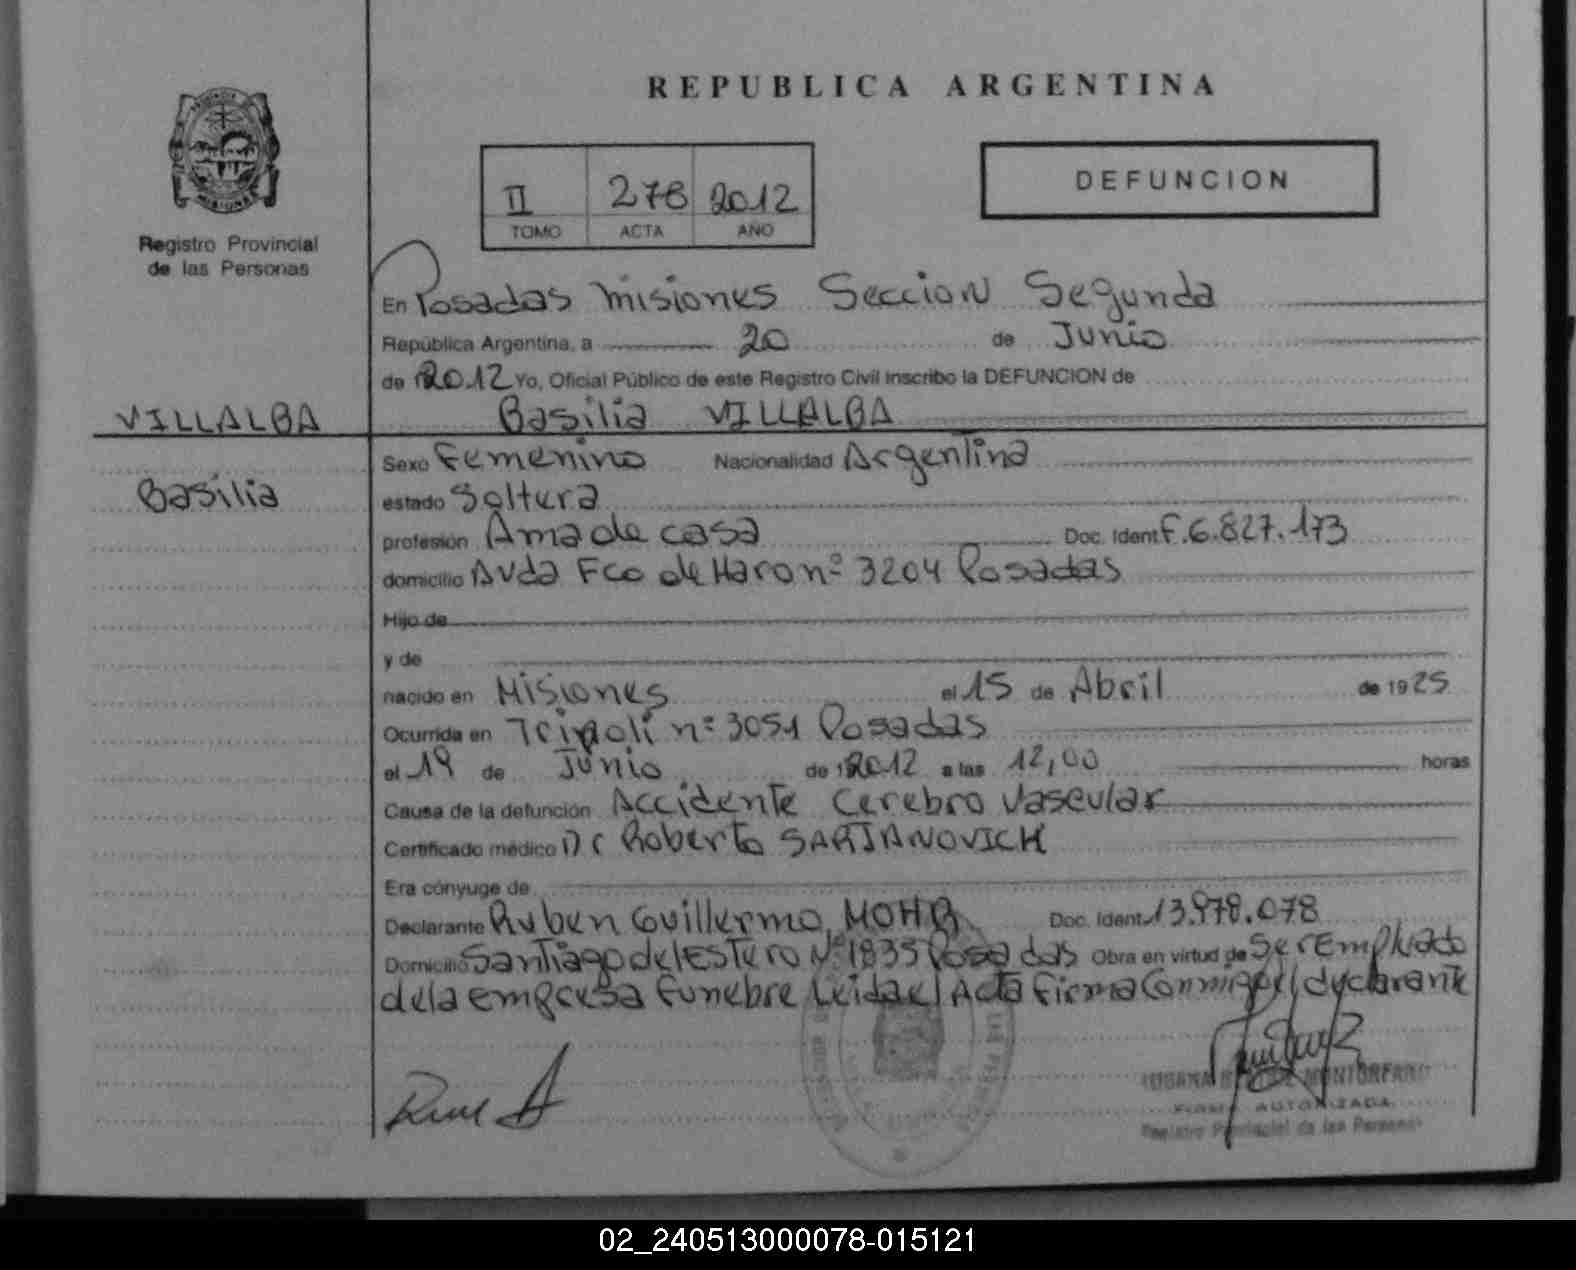 REPUBLICA ARGENTINA
DEFUNCION
II 278 2012
TOMO ACTA AÑO
Registro Provincial
de las Personas
En Posadas Misiones Seccion Segunda
República Argentina, a 20 de Junio
de 2012 Yo, Oficial Público de este Registro Civil inscribo la DEFUNCION de
VILLALBA Basilia VILLALBA
Sexo Femenino Nacionalidad Argentina
Basilia estado Soltera
profesión Ama de casa Doc. Ident F.6.827.173
domicilio Avda Fco de Haro nº 3204 Posadas
Hijo de
y de
nacido en Misiones el 15 de Abril de 1925
Ocurrida en Tripoli nº 3051 Posadas
el 19 de Junio de 2012 a las 12,00 horas
Causa de la defunción Accidente Cerebro Vascular
Certificado médico Dr Roberto SARJANOVICH
Era cónyuge de
Declarante Ruben Guillermo MOHR Doc. Ident 13.978.078
Domicilio Santiago del Estero Nº 1835 Posadas Obra en virtud de Ser Empleado
de la empresa Funebre Leida el Acta Firma Conmigo el declarante
FIRMA AUTORIZADA
Registro Provincial de las Personas
02_240513000078-015121